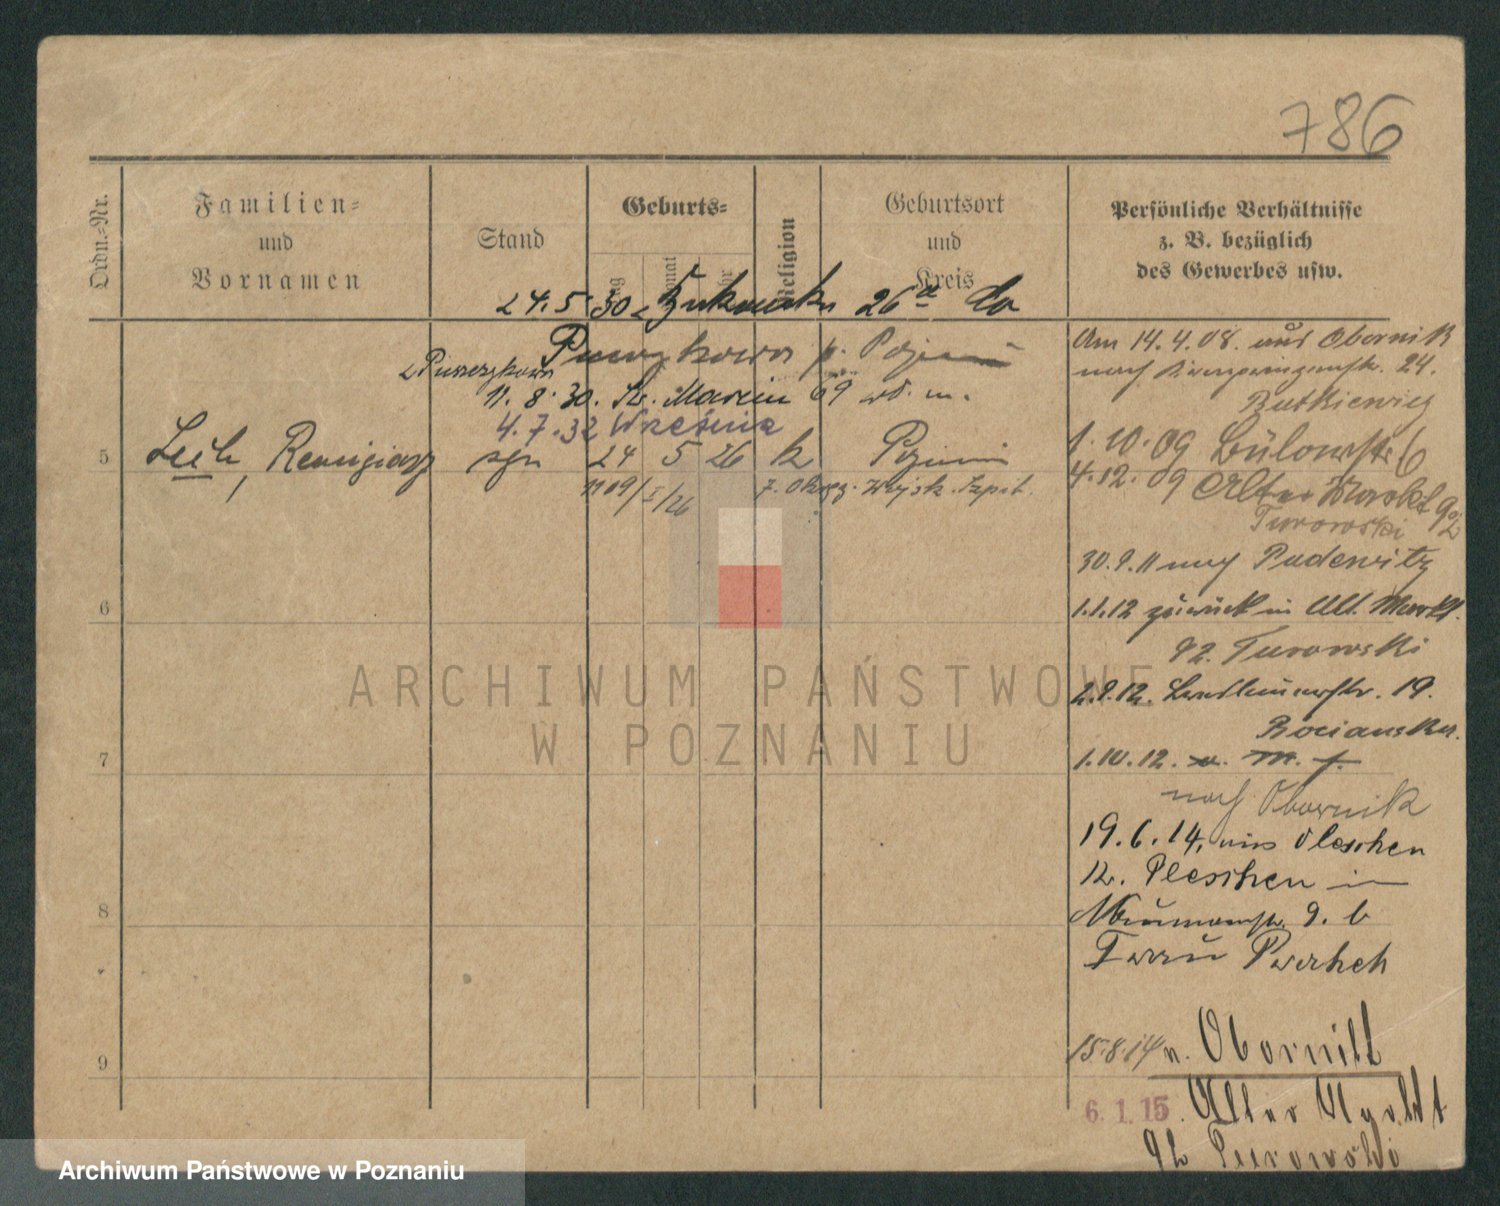 786
Ordn.-Nr.
Familien-
und
Vornamen
Stand
Geburts-
Tag
Monat
Jahr
Religion
Geburtsort
und
Kreis
Persönliche Verhältnisse
z. B. bezüglich
des Gewerbes usw.
24.5.30 26
Puszczykowo
11.8.30. Św. Marcin 69
4.7.32 Września
5 Lech, Remigiusz syn 24 5 26 k
1109/I/26 7. Okręg. Wojsk. Szpit.
6
7
8
9
Am 14.4.08. aus Obornik
nach 24.
Butkiewicz
1.10.09 Bülowstr. 6
4.12.09 Alter Markt 92
Turowski
30.9.11 nach Pudewitz
1.1.12 zurück in Alt. Markt.
92. Turowski
2.9.12. 19.
1.10.12.
nach Obornik
19.6.14, aus Pleschen
K. Pleschen in
9. b
Frau
15.8.14 n. Obornik
6.1.15. Alter Markt
92 Turowski
ARCHIWUM PAŃSTWOWE
W POZNANIU
Archiwum Państwowe w Poznaniu